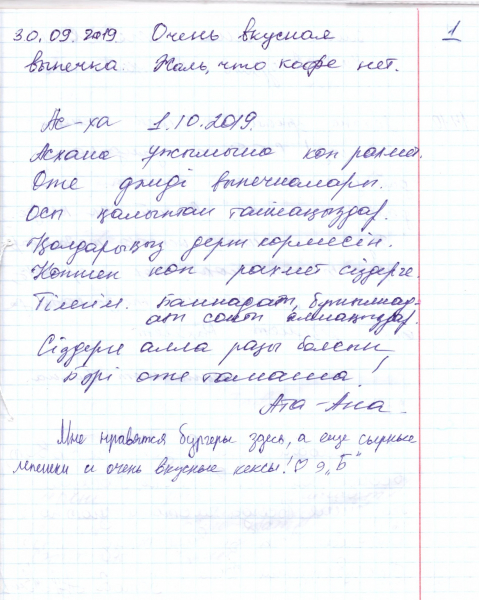 30.09.2019. Очень вкусная
1
выпечка Жаль, что кофе нет.
Ас-ха 1.10.2019.
Асхана ужымына көп рахмет.
Өте дәмді выпечкалары.
Осы қалыптан таймаңыздар.
Қолдарыңыз дерт көрмесін.
Көптен көп рахмет сіздерге.
Тілегім.
Сіздерге алла разы болсын
Бәрі өте тамаша!
Ата-Ана.
Мне нравятся бургеры здесь, а еще сырные
лепешки и очень вкусные кексы! ♡ 9 „Б"